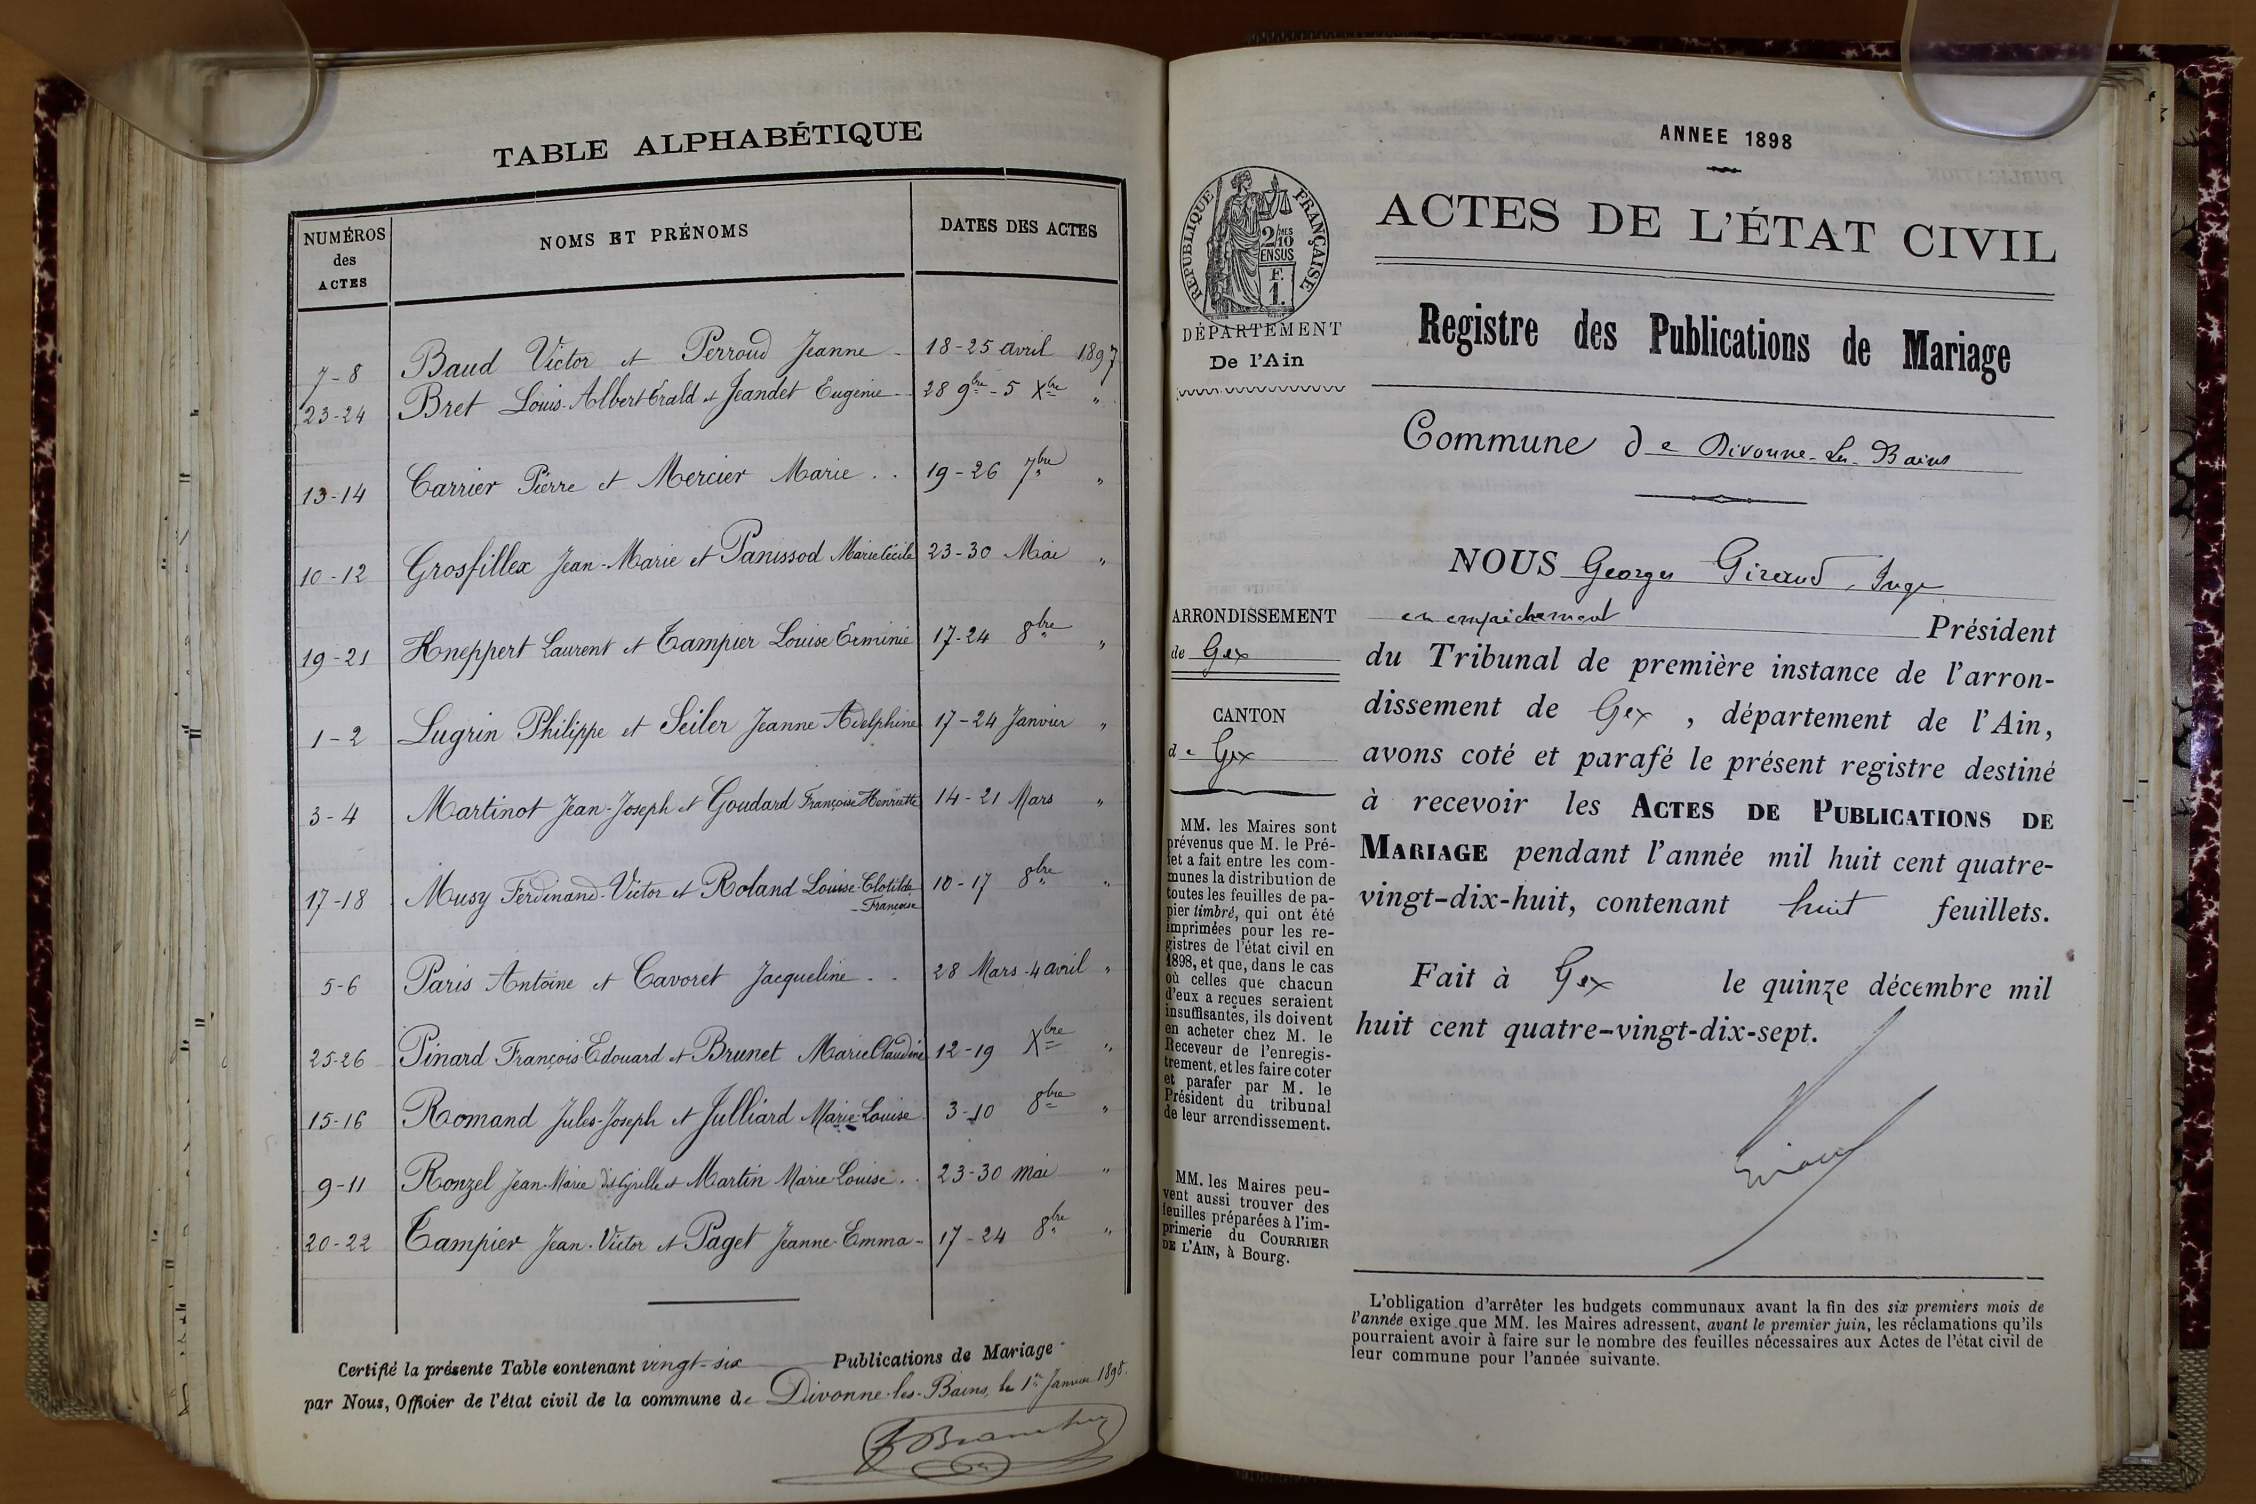 TABLE ALPHABÉTIQUE
NUMÉROS
des
ACTES
NOMS ET PRÉNOMS
DATES DES ACTES
7-8 Baud Victor et Perroud Jeanne - 18-25 avril 1897
23-24 Bret Louis-Albert Érald et Jeandet Eugénie 28 9bre - 5 Xbre "
13-14 Carrier Pierre et Mercier Marie . . 19-26 7bre "
10-12 Grosfillex Jean-Marie et Panissod Marie Cécile 23-30 Mai "
19-21 Kneppert Laurent et Tampier Louise Erminie 17-24 8bre "
1-2 Lugrin Philippe et Seiler Jeanne Adelphine 17-24 Janvier "
3-4 Martinot Jean-Joseph et Goudard Françoise Henriette 14-21 Mars "
17-18 Musy Ferdinand-Victor et Roland Louise-Clotilde 10-17 8bre "
-Françoise
5-6 Paris Antoine et Cavoret Jacqueline . . 28 Mars-4 avril "
25-26 Pinard François Edouard et Brunet Marie Claudine 12-19 Xbre "
15-16 Romand Jules-Joseph et Julliard Marie-Louise 3-10 8bre "
9-11 Ronzel Jean-Marie dit Cyrille et Martin Marie-Louise . . 23-30 mai "
20-22 Tampier Jean-Victor et Paget Jeanne-Emma - 17-24 8bre "
Certifié la présente Table contenant vingt-six Publications de Mariage
par Nous, Officier de l'état civil de la commune de Divonne-les-Bains, le 1er Janvier 1898.
ANNEE 1898
RÉPUBLIQUE FRANÇAISE
2/10MES
EN SUS
F.
1.
DÉPARTEMENT
De l'Ain
ACTES DE L'ÉTAT CIVIL
Registre des Publications de Mariage
Commune de Divonne-les-Bains
ARRONDISSEMENT
de Gex
CANTON
de Gex
MM. les Maires sont
prévenus que M. le Pré-
fet a fait entre les com-
munes la distribution de
toutes les feuilles de pa-
pier timbré, qui ont été
imprimées pour les re-
gistres de l'état civil en
1898, et que, dans le cas
où celles que chacun
d'eux a reçues seraient
insuffisantes, ils doivent
en acheter chez M. le
Receveur de l'enregis-
trement, et les faire coter
et parafer par M. le
Président du tribunal
de leur arrondissement.
MM. les Maires peu-
vent aussi trouver des
feuilles préparées à l'im-
primerie du COURRIER
DE L'AIN, à Bourg.
NOUS Georges Giraud, Juge
en empaichement Président
du Tribunal de première instance de l'arron-
dissement de Gex , département de l'Ain,
avons coté et parafé le présent registre destiné
à recevoir les ACTES DE PUBLICATIONS DE
MARIAGE pendant l'année mil huit cent quatre-
vingt-dix-huit, contenant huit feuillets.
Fait à Gex le quinze décembre mil
huit cent quatre-vingt-dix-sept.
L'obligation d'arrêter les budgets communaux avant la fin des six premiers mois de
l'année exige que MM. les Maires adressent, avant le premier juin, les réclamations qu'ils
pourraient avoir à faire sur le nombre des feuilles nécessaires aux Actes de l'état civil de
leur commune pour l'année suivante.